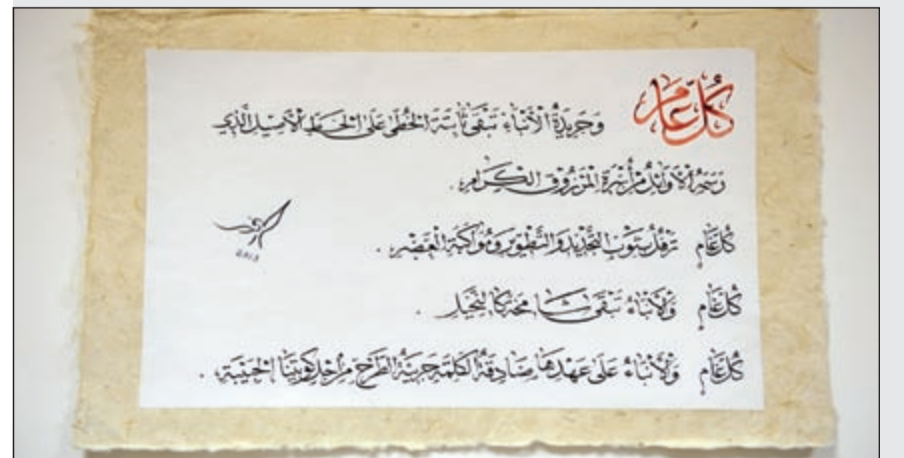 كُلّ عَام وَجَرِيدَةُ الْأَنْبَاء تَبْقَى ثَابِتَةَ الْخُطَى عَلَى الْخَطِّ الْأَصِيل الَّذِي
رَسَمَهُ الْأَوَائِلُ مِنْ أُسْرَةِ الْمَرْزُوق الْكِرَام .
كُلّ عَام تَرْفُلُ بِثَوْبِ التَّجْدِيدِ وَالتَّطْوِيرِ وَمُوَاكَبَةِ الْعَصْرِ .
كُلّ عَام وَالْأَنْبَاءُ تَبْقَى
كُلّ عَام وَالْأَنْبَاءُ عَلَى عَهْدِهَا صَادِقَةُ الْكَلِمَةِ جَرِيئَةُ الطَّرْحِ مِنْ أَجْلِ كُوَيْتِنَا الْحَبِيبَةِ .